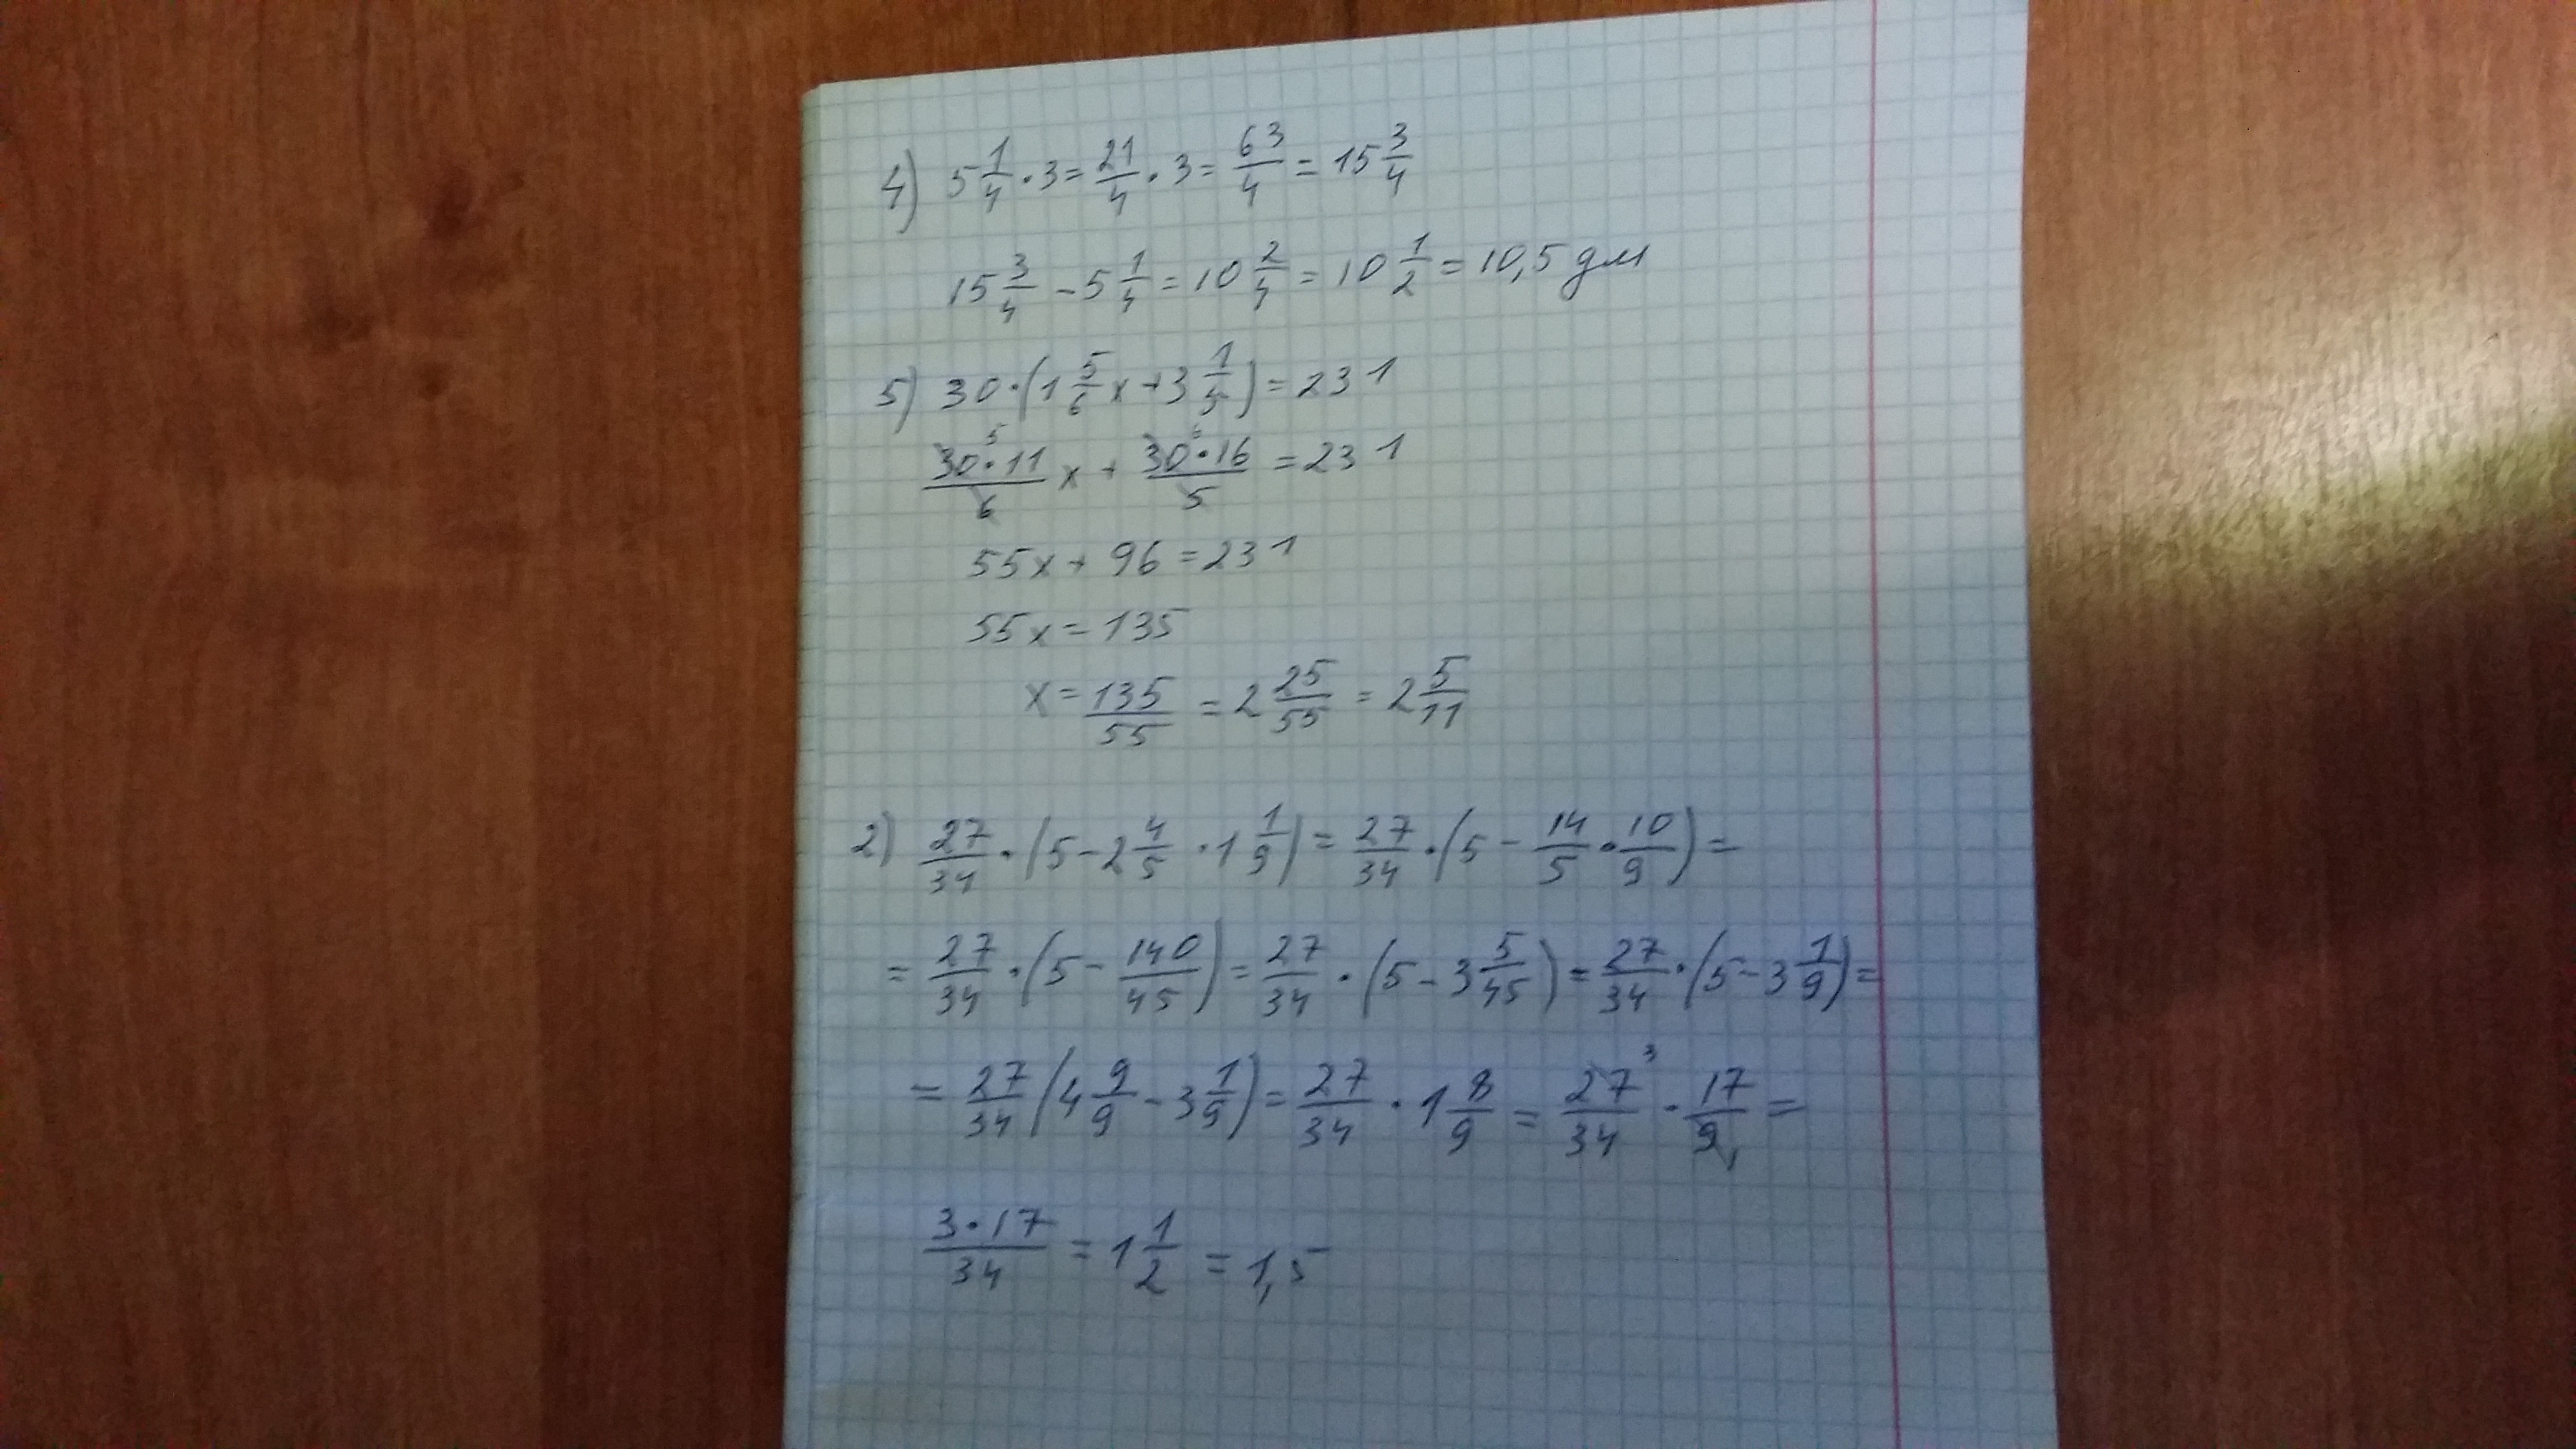 4) 5 1/4 · 3 = 21/4 · 3 = 63/4 = 15 3/4
15 3/4 - 5 1/4 = 10 2/4 = 10 1/2 = 10,5 дм
5) 30 · (1 5/6 x + 3 1/5) = 231
30⁵ · 11/6 x + 30⁶ · 16/5 = 231
55x + 96 = 231
55x = 135
x = 135/55 = 2 25/55 = 2 5/11
2) 27/34 · (5 - 2 4/5 · 1 1/9) = 27/34 · (5 - 14/5 · 10/9) =
= 27/34 · (5 - 140/45) = 27/34 · (5 - 3 5/45) = 27/34 · (5 - 3 1/9) =
= 27/34 (4 9/9 - 3 1/9) = 27/34 · 1 8/9 = 27³/34 · 17/9₁ =
3 · 17/34 = 1 1/2 = 1,5